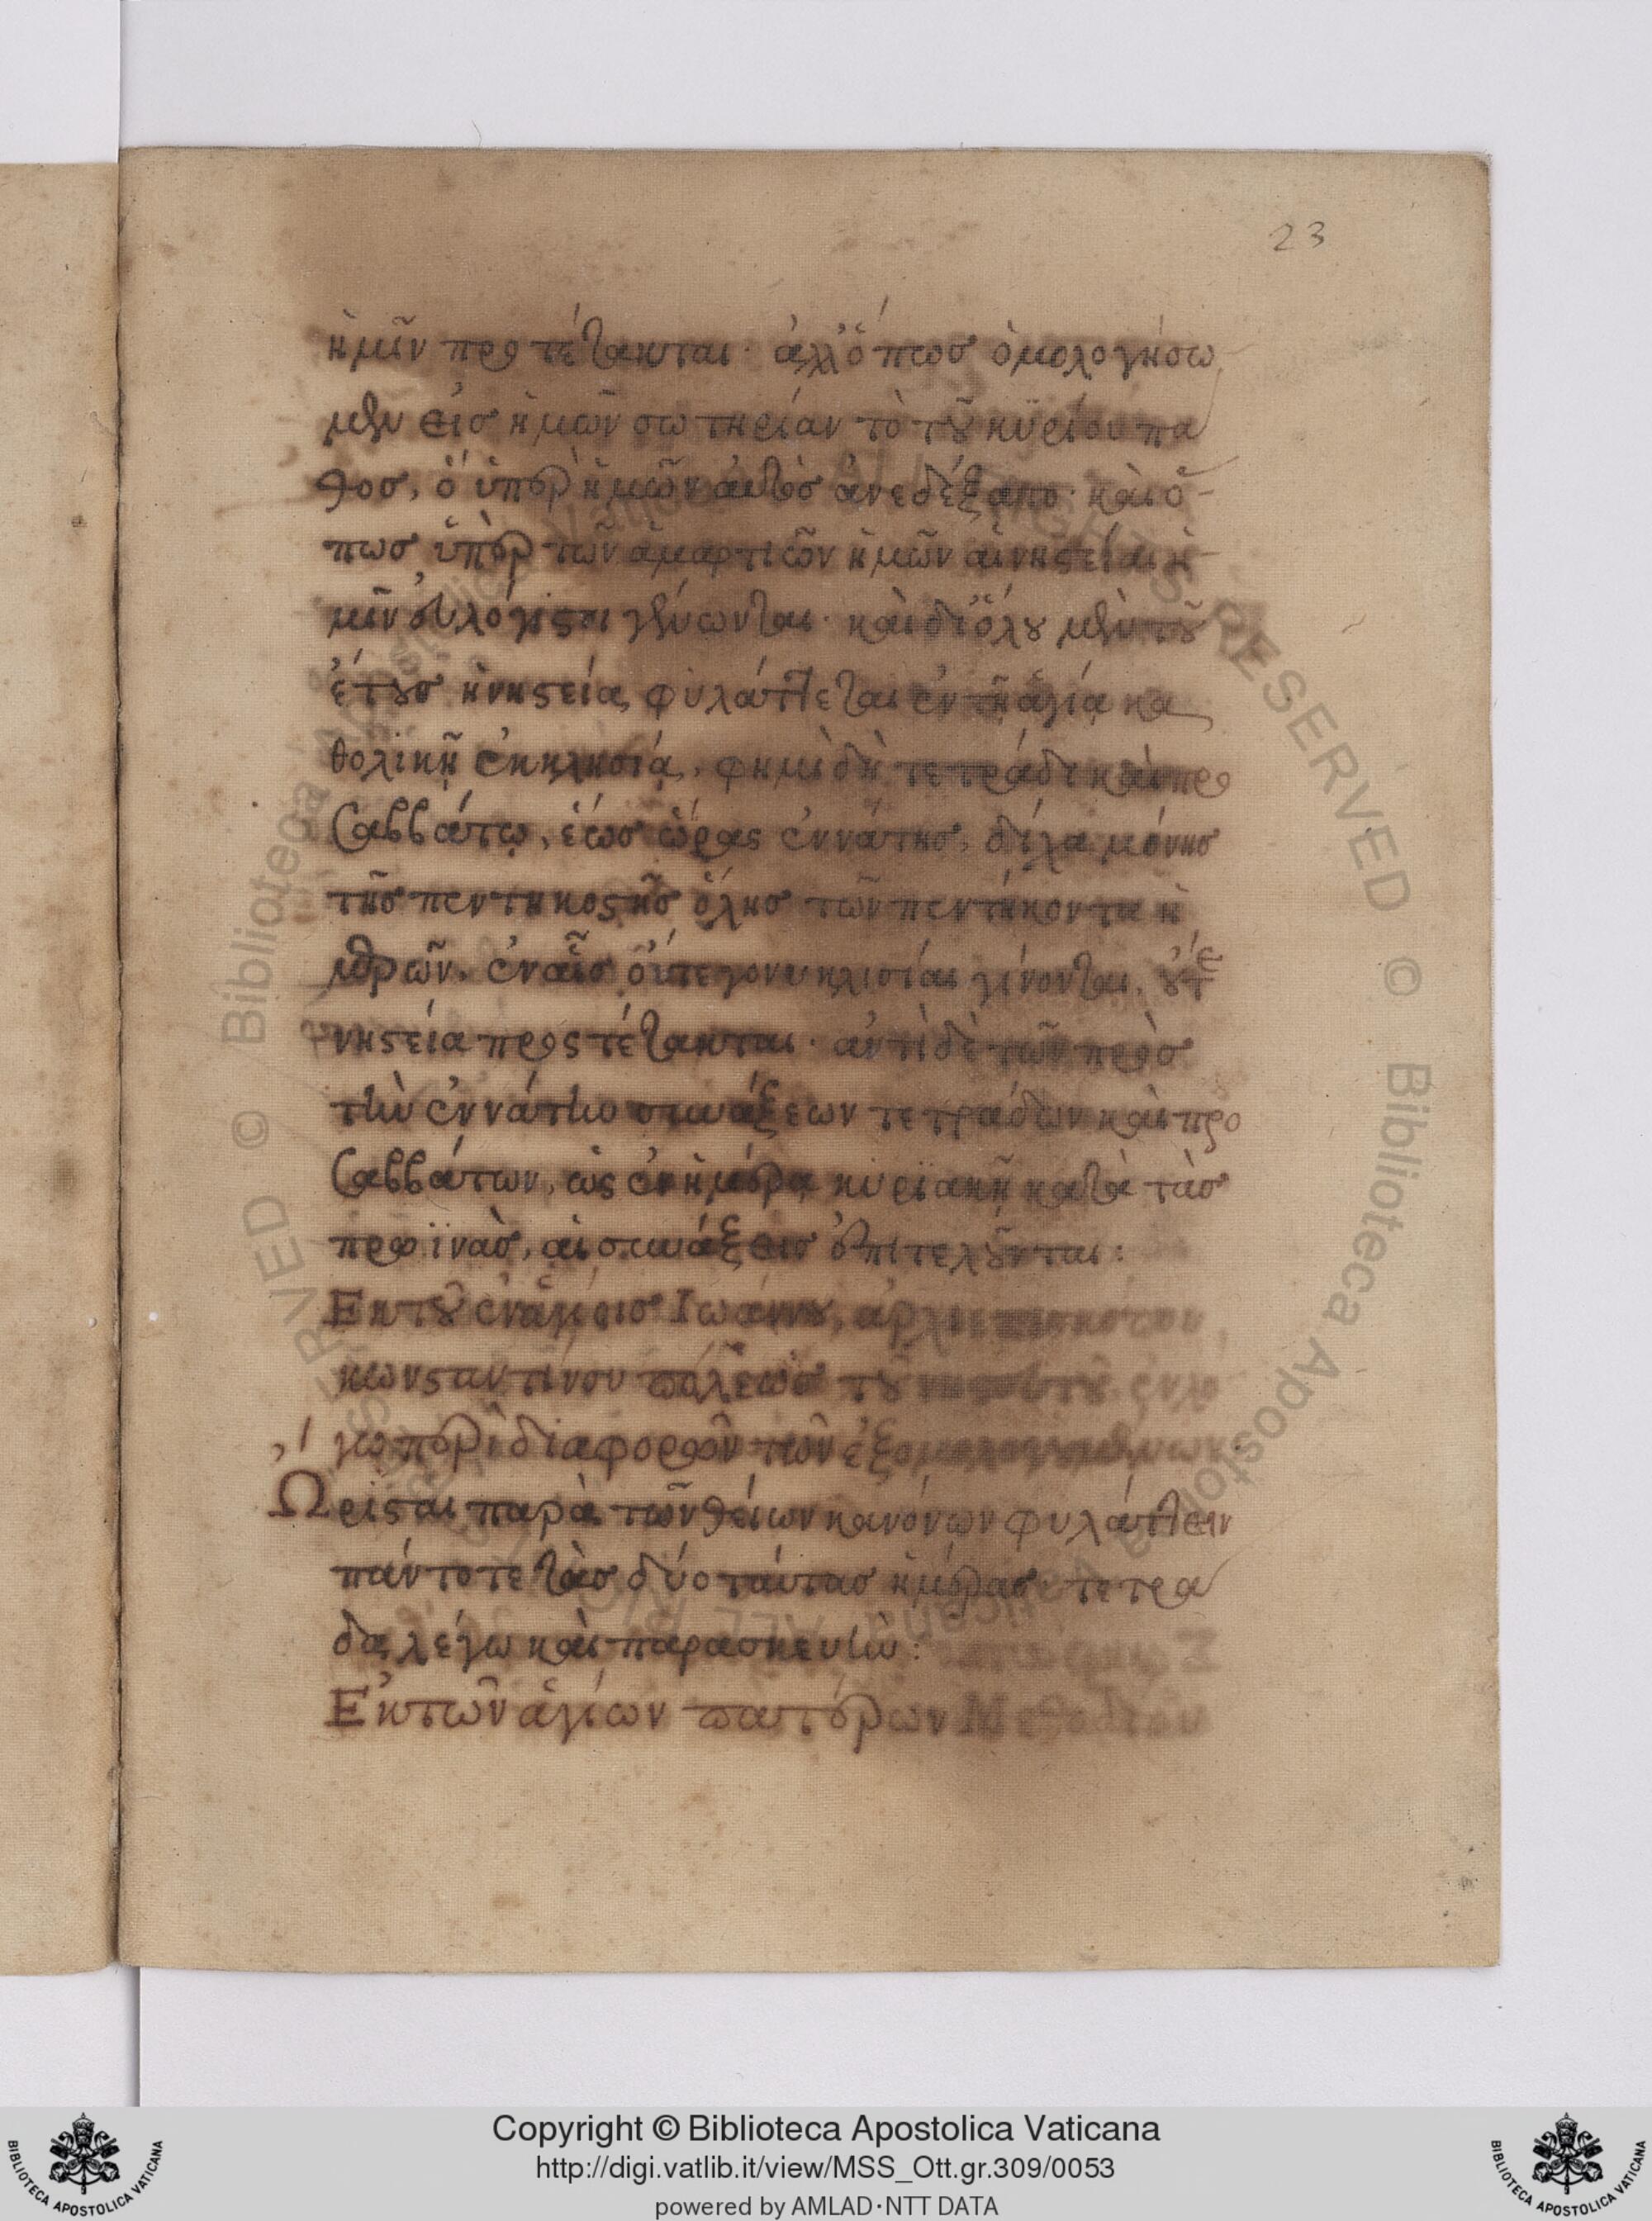 23
ἡμῖν προτέτακται· ἀλλ' ὅπως ὁμολογήσω
μεν εἰς ἡμῶν σωτηρίαν τὸ τοῦ κυρίου πά
θος, ὃ ὑπὲρ ἡμῶν αὐτὸς ἀνεδέξατο· καὶ ὅ-
πως ὑπὲρ τῶν ἁμαρτιῶν ἡμῶν αἱ νηστείαι ἡ-
μῖν εὐλόγισται γένωνται· καὶ δι' ὅλου μὲν τοῦ
ἔτους ἡ νηστεία φυλάττεται ἐν τῆ ἁγία κα
θολικῆ ἐκκλησία, φημὶ δὴ τετράδι καὶ προ
σαββάτω, ἕως ὥρας ἐννάτης, δίχα μόνης
τῆς πεντηκοστῆς ὅλης τῶν πεντήκοντα ἡ
μερῶν. ἐν αἷς οὔτε γονυκλισίαι γίνονται, οὔτε
νηστεία προστέτακται· ἀντὶ δὲ τῶν πρὸς
τὴν ἐννάτην συνάξεων τετράδων καὶ προ
σαββάτων, ὡς ἐν ἡμέρα κυριακῆ κατὰ τὰς
πρωϊνὰς, αἱ συνάξεις ἐπιτελοῦνται:
Ἐκ τοῦ ἐν ἁγίοις Ἰωάννου, ἀρχιεπισκόπου
κωνσταντίνου πόλεως τοῦ νηστευτοῦ
περὶ διαφορῶν τῶν
Ὥρισται παρὰ τῶν θείων κανόνων φυλάττειν
πάντοτε τὰς δύο ταύτας ἡμέρας τετρά
δα λέγω καὶ παρασκευὴν:
Ἐκ τῶν ἁγίων πατέρων Μεθοδίου
Copyright © Biblioteca Apostolica Vaticana
http://digi.vatlib.it/view/MSS_Ott.gr.309/0053
powered by AMLAD·NTT DATA